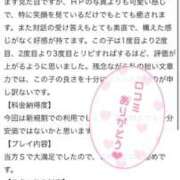 まず見た目ですが、ＨＰの写真よりも可愛い感じ
で、特に笑顔を見ているだけでもとても癒されま
す。また対話の受け答えもとても素直で、構えた感
じがなく好感が持てます。この子は1度目より2
度目、2度目より3度目とリピすればするほど、評価
が上がるように思いました。残念ながら私の拙い文章
力では、この子の良さを十分に
訳ないです。
【料金納得度】
今回は新規割での利用でし
安価ではないかと思います
【プレイ内容】
当方Ｓで大満足でした。
口コミ
ありがとう